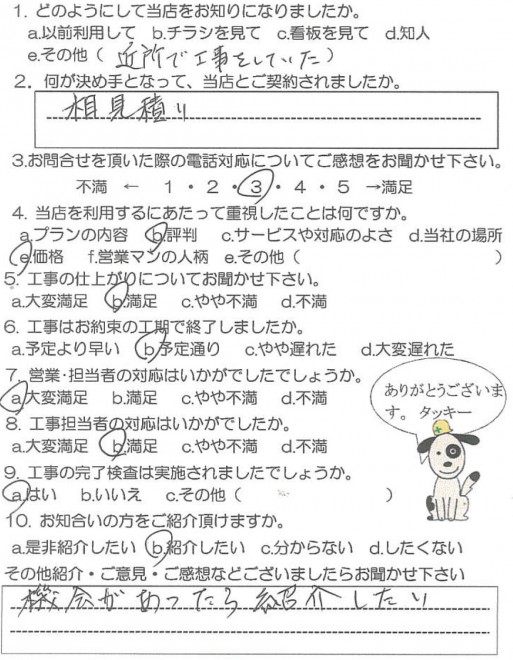 1. どのようにして当店をお知りになりましたか。
a.以前利用して b.チラシを見て c.看板を見て d.知人
e.その他（ 近所で工事をしていた ）
2. 何が決め手となって、当店とご契約されましたか。
相見積り
3.お問合せを頂いた際の電話対応についてご感想をお聞かせ下さい。
不満 ← 1・2・3・4・5 →満足
4. 当店を利用するにあたって重視したことは何ですか。
a.プランの内容 b.評判 c.サービスや対応のよさ d.当社の場所
e.価格 f.営業マンの人柄 e.その他（ ）
5. 工事の仕上がりについてお聞かせ下さい。
a.大変満足 b.満足 c.やや不満 d.不満
6. 工事はお約束の工期で終了しましたか。
a.予定より早い b.予定通り c.やや遅れた d.大変遅れた
7. 営業・担当者の対応はいかがでしたでしょうか。
a.大変満足 b.満足 c.やや不満 d.不満
8. 工事担当者の対応はいかがでしたか。
a.大変満足 b.満足 c.やや不満 d.不満
ありがとうございま
す。 タッキー
9. 工事の完了検査は実施されましたでしょうか。
a.はい b.いいえ c.その他（ ）
10. お知合いの方をご紹介頂けますか。
a.是非紹介したい b.紹介したい c.分からない d.したくない
その他紹介・ご意見・ご感想などございましたらお聞かせ下さい
機会があったら紹介したり